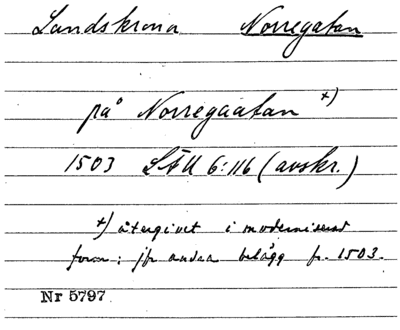 Landskrona Norregatan
på Norregaatan x)
1503 LÄU 6:116 (avskr.)
x) återgivet i moderniserad
form; jfr andra belägg fr. 1503.
Nr 5797